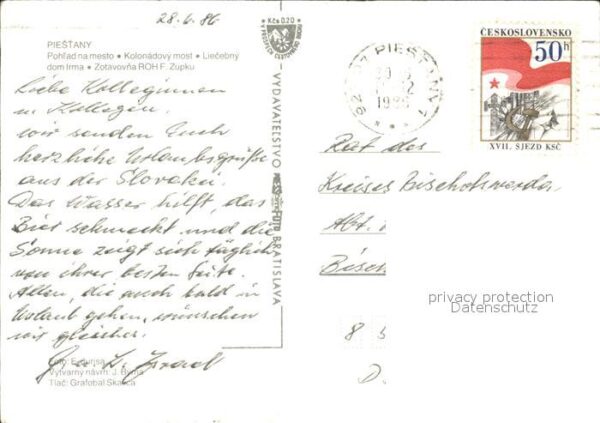 28.6.86
PIEŠŤANY
Pohľad na mesto • Kolonádový most • Liečebný
dom Irma • Zotavovňa ROH F. Zupku
Liebe Kolleginnen
u. Kollegen.
wir senden Euch
herzliche Urlaubsgrüße
aus der Slovakei.
Das Wasser hilft, das
Bier schmeckt und die
Sonne zeigt sich täglich
von ihrer besten Seite.
Allen, die auch bald in
Urlaub gehen, wünschen
wir gleiches.
Výtvarný návrh: J.
Tlač: Grafobal Skalica
Kčs 0,20
VYDAVATEĽSTVO
BRATISLAVA
PIEŠŤANY 1
ČESKOSLOVENSKO
50 h
XVII. SJEZD KSČ
Rat des
Kreises Bischofswerda
Abt.
Bisch
privacy protection
Datenschutz
8
D